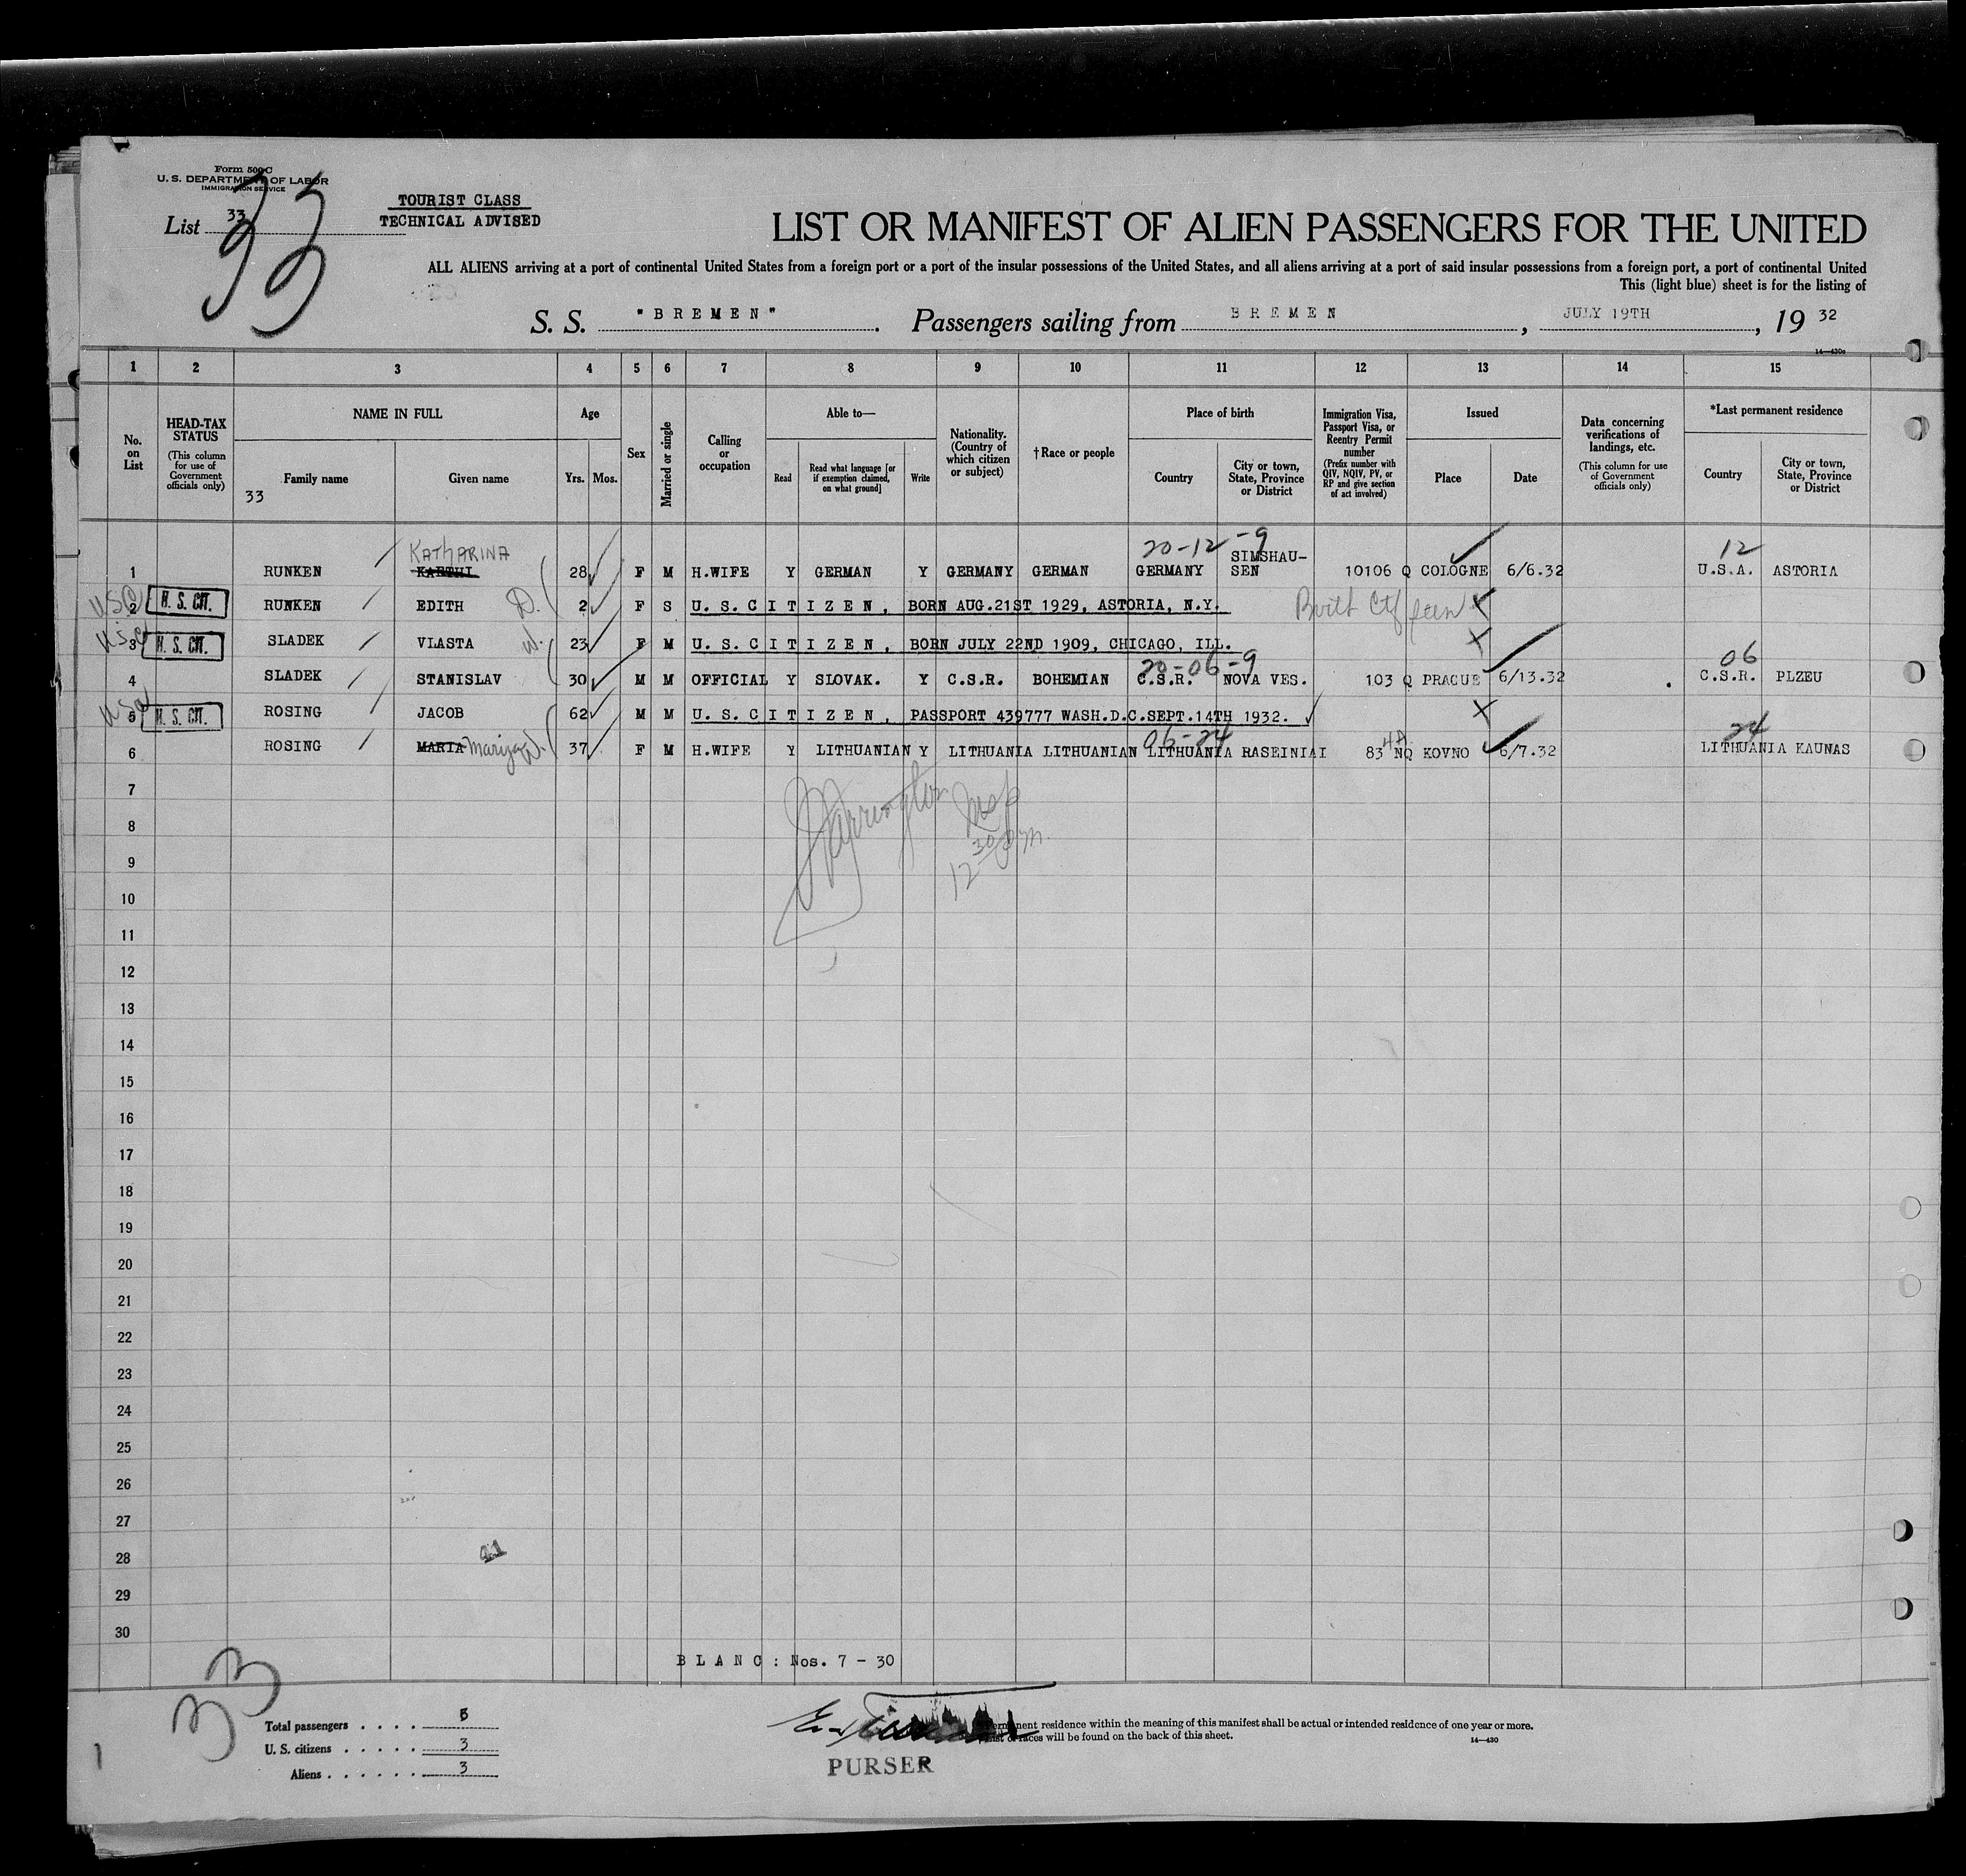 Form 500C
U. S. DEPARTMENT OF LABOR
IMMIGRATION SERVICE
List 33
33
TOURIST CLASS
TECHNICAL ADVISED
LIST OR MANIFEST OF ALIEN PASSENGERS FOR THE UNITED
ALL ALIENS arriving at a port of continental United States from a foreign port or a port of the insular possessions of the United States, and all aliens arriving at a port of said insular possessions from a foreign port, a port of continental United
This (light blue) sheet is for the listing of
S. S. "BREMEN". Passengers sailing from BREMEN, JULY 19TH, 19 32
14—430a
1 2 3 4 5 6 7 8 9 10 11 12 13 14 15
No. on List
HEAD-TAX STATUS (This column for use of Government officials only)
NAME IN FULL
33 Family name Given name
Age Yrs. Mos.
Sex
Married or single
Calling or occupation
Able to—
Read Read what language [or if exemption claimed, on what ground] Write
Nationality. (Country of which citizen or subject)
†Race or people
Place of birth
Country City or town, State, Province or District
Immigration Visa, Passport Visa, or Reentry Permit number (Prefix number with QIV, NQIV, PV, or RP and give section of act involved)
Issued
Place Date
Data concerning verifications of landings, etc. (This column for use of Government officials only)
*Last permanent residence
Country City or town, State, Province or District
KATHARINA 20-12-9 12
1 RUNKEN KARTHI 28 F M H.WIFE Y GERMAN Y GERMANY GERMAN GERMANY SIMSHAU-SEN 10106 Q COLOGNE 6/6.32 U.S.A. ASTORIA
USC 2 U. S. CIT. RUNKEN EDITH D. 2 F S U. S. C I T I Z E N, BORN AUG.21ST 1929, ASTORIA, N.Y. X
USC 3 U. S. CIT. SLADEK VLASTA W. 23 F M U. S. C I T I Z E N, BORN JULY 22ND 1909, CHICAGO, ILL. X
20-06-9 06
4 SLADEK STANISLAV 30 M M OFFICIAL Y SLOVAK. Y C.S.R. BOHEMIAN C.S.R. NOVA VES. 103 Q PRAGUE 6/13.32 C.S.R. PLZEU
USC 5 U. S. CIT. ROSING JACOB 62 M M U. S. C I T I Z E N, PASSPORT 439777 WASH.D.C.SEPT.14TH 1932. X
06-24 24
6 ROSING MARIA W. 37 F M H.WIFE Y LITHUANIAN Y LITHUANIA LITHUANIAN LITHUANIA RASEINIAI 83 NQ KOVNO 6/7.32 LITHUANIA KAUNAS
7
8
12 30 p.m.
9
10
11
12
13
14
15
16
17
18
19
20
21
22
23
24
25
26
27
28
29
30
BLANC: Nos. 7 - 30
33
Total passengers . . . . 6
U. S. citizens . . . . . 3
Aliens . . . . . . 3
PURSER
permanent residence within the meaning of this manifest shall be actual or intended residence of one year or more.
List of races will be found on the back of this sheet.
14—430